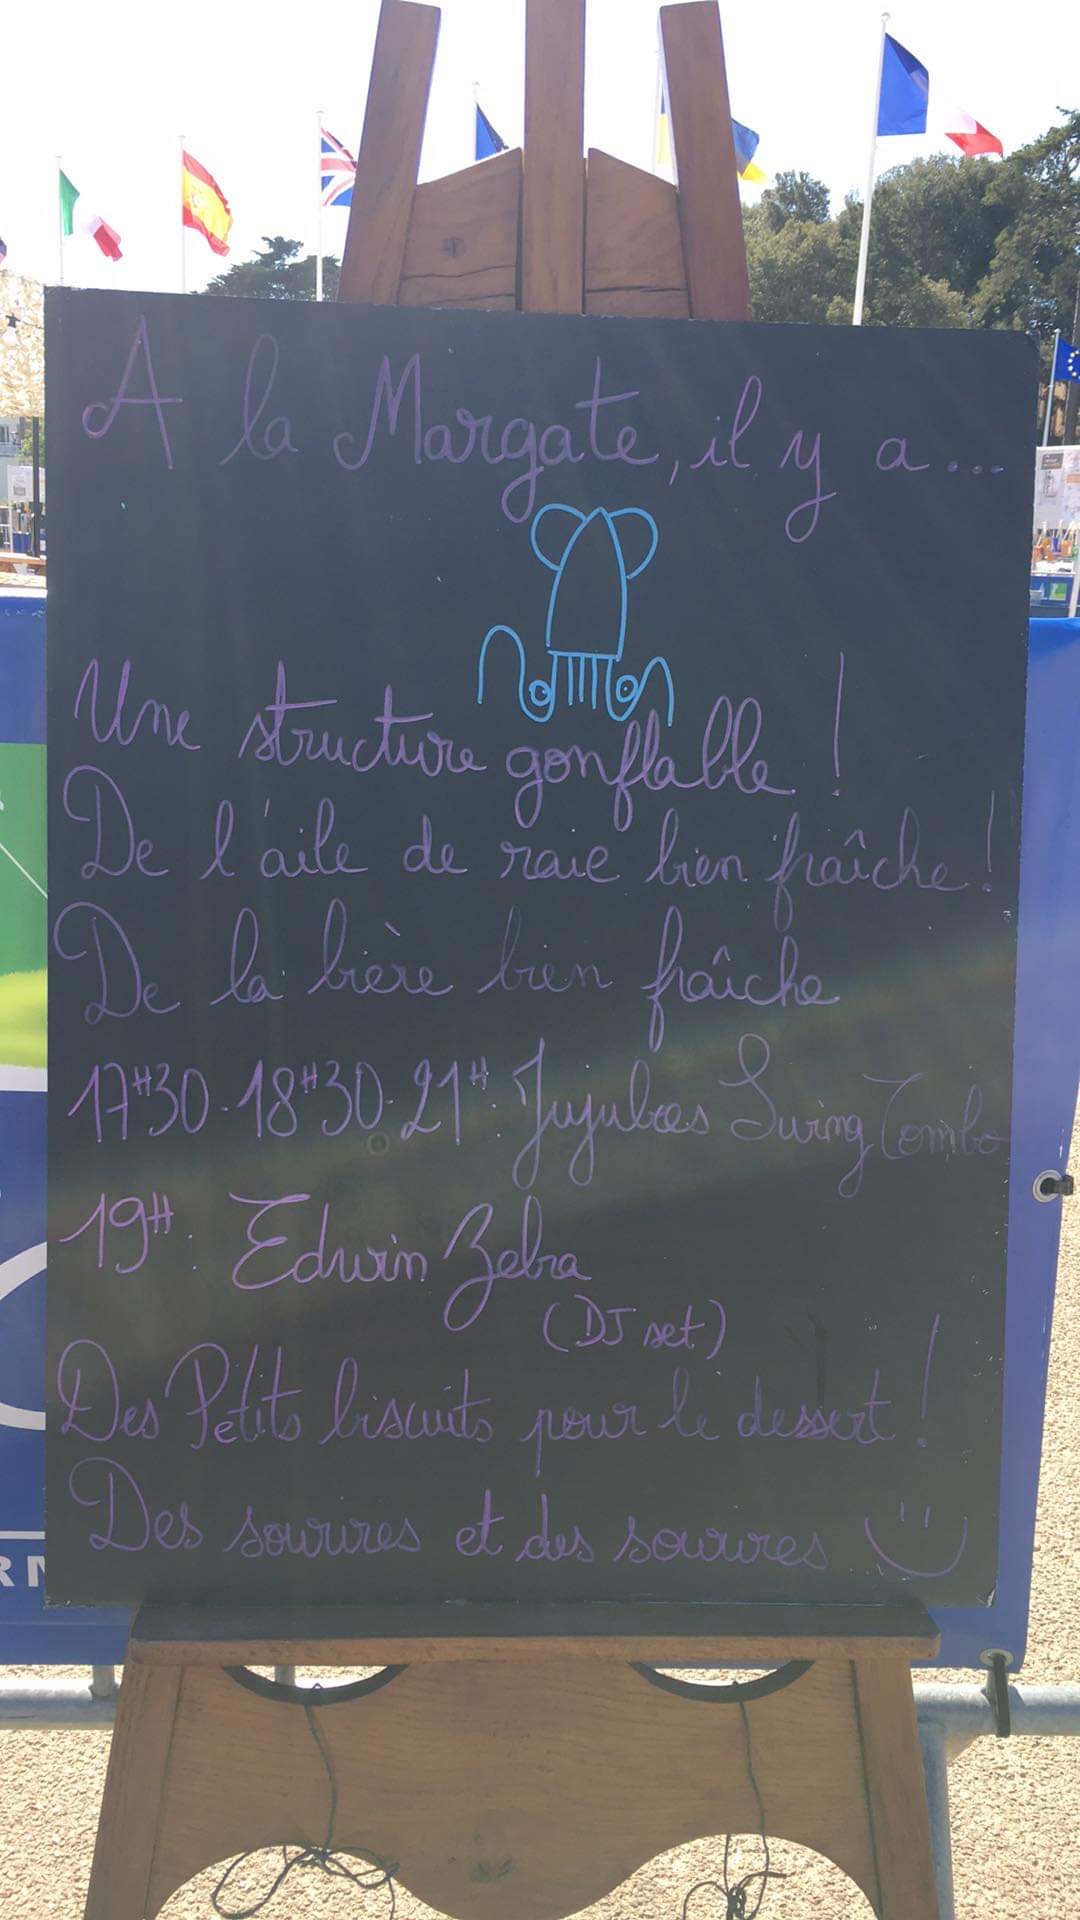 A la Margate, il y a...
Une structure gonflable !
De l'aile de raie bien fraîche !
De la bière bien fraîche
17H30 - 18H30 - 21H : Jujubes Swing Combo
19H : Edwin Zebra
(DJ set)
Des Petits biscuits pour le dessert !
Des sourires et des sourires
RM